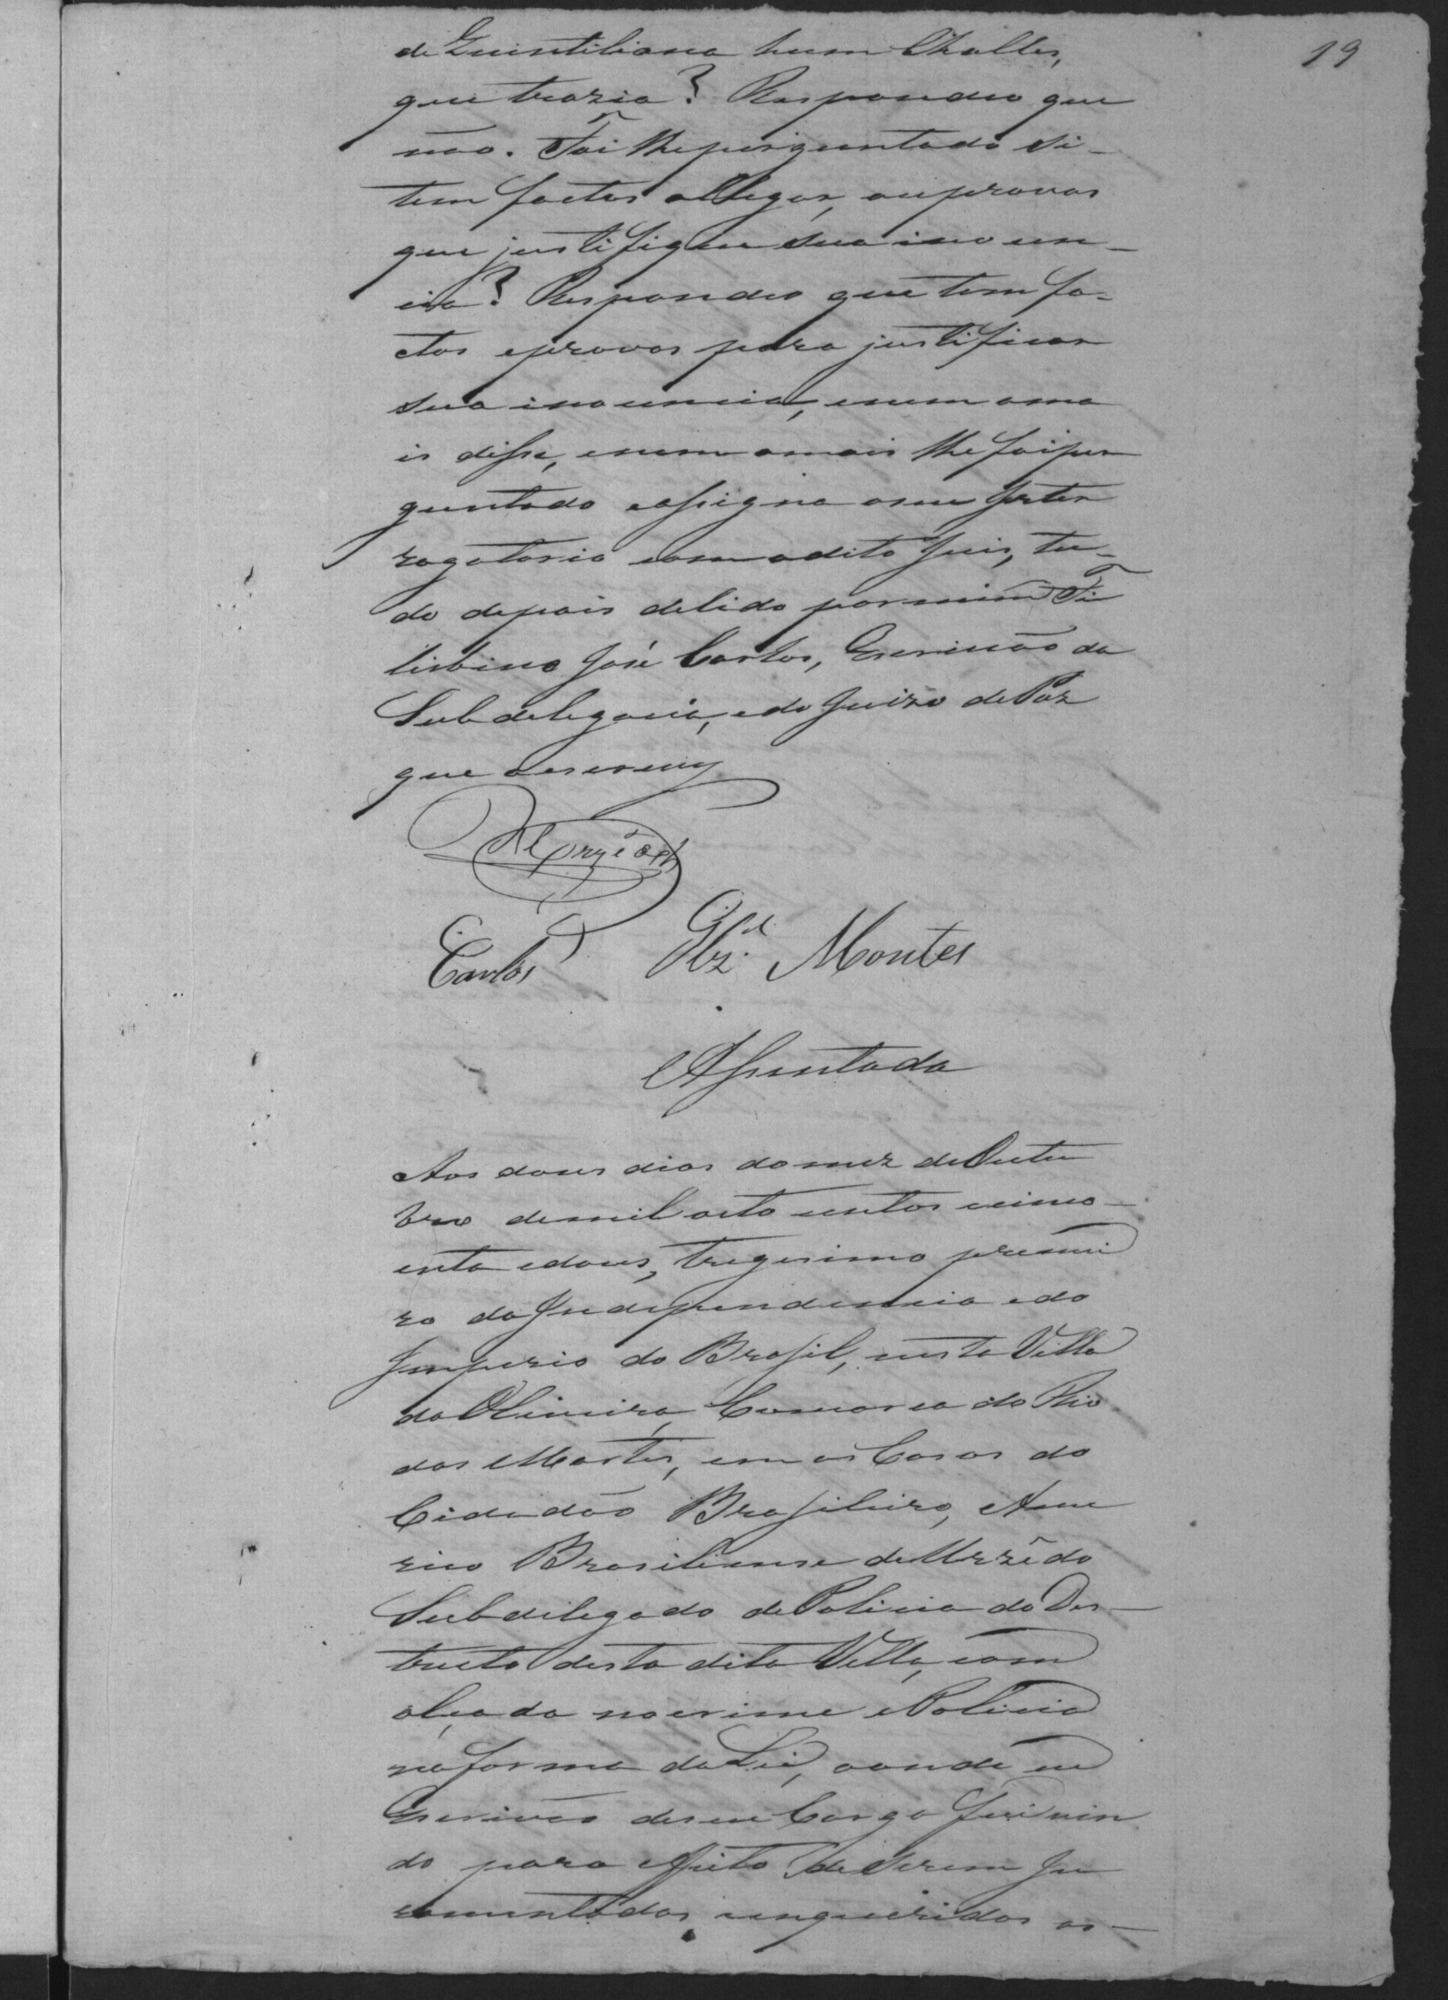 19
de Quintiliana hum Challes,
que trazia? Respondeo que
não. Foi lhe perguntado si-
tem factos allegar, ou provas
que justifique sua inocen-
cia? Respondeo que tem fa-
ctos e provas para justificar
sua inocencia, enem ama
is disse, enem amais lhe foi per
guntado e assigna o seu Inter
rogatorio com o dito Juis, tu-
do depois de lido por mim Ti
lisbino José Carlos, Escrivão da
Subdelegacia, e do Juizo de Paz
que o escrevy
Carlos Montes
Assentada
Aos dous dias do mez de Outu
bro de mil oito centos cinco-
enta e dous, trigesimo primei
ro da Independencia e do
Imperio do Brasil, nesta Villa
da Oliveira, Comarca do Rio
das Mortes, em as Casas do
Cidadão Brasileiro, Ame
rico Brasiliense de Urzêdo
Subdilegado de Policia do Des-
tricto desta dita Villa, com
alçada no crime e Policia
na forma da Lei, aonde eu
Escrivão de seu Cargo fui vin
do para efeito de serem Ju
ramentados e enqueridos as-